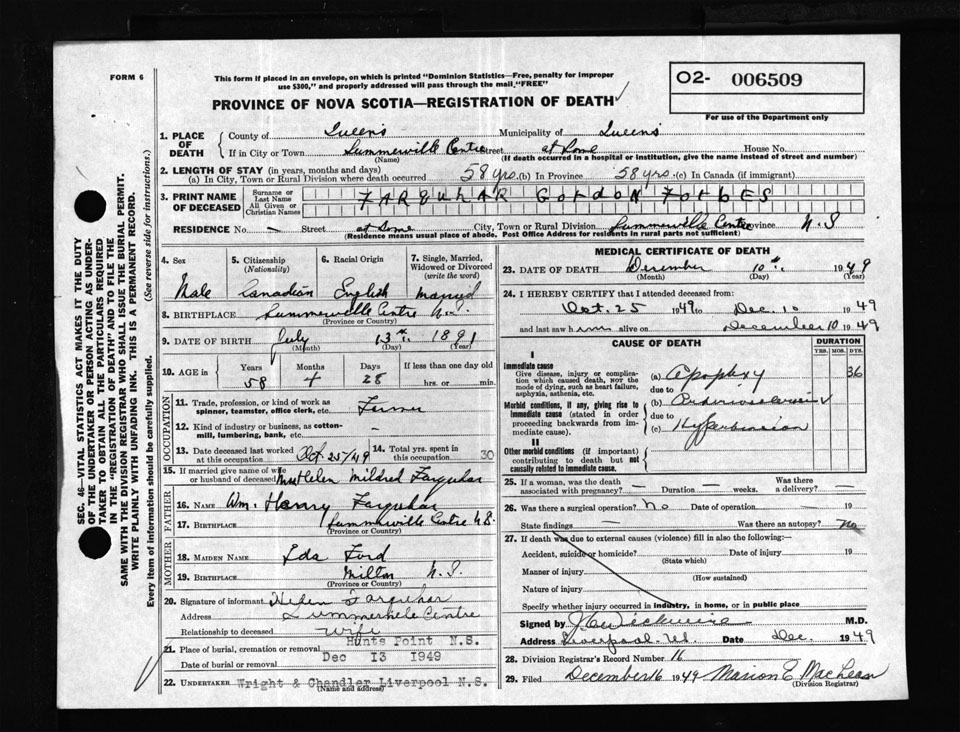 FORM 6
This form if placed in an envelope, on which is printed "Dominion Statistics—Free, penalty for improper
use $300," and properly addressed will pass through the mail, "FREE"
PROVINCE OF NOVA SCOTIA—REGISTRATION OF DEATH
O2- 006509
For use of the Department only
SEC. 46—VITAL STATISTICS ACT MAKES IT THE DUTY
OF THE UNDERTAKER OR PERSON ACTING AS UNDER-
TAKER TO OBTAIN ALL THE PARTICULARS REQUIRED
IN THE "REGISTRATION OF DEATH" AND TO FILE THE
SAME WITH THE DIVISION REGISTRAR WHO SHALL ISSUE THE BURIAL PERMIT.
WRITE PLAINLY WITH UNFADING INK. THIS IS A PERMANENT RECORD.
Every item of information should be carefully supplied. (See reverse side for instructions.)
1. PLACE OF DEATH County of Queens Municipality of Queens
If in City or Town Summerville Centre Street at Home House No.
(Name) (If death occurred in a hospital or institution, give the name instead of street and number)
2. LENGTH OF STAY (in years, months and days)
(a) In City, Town or Rural Division where death occurred 58 yrs. (b) In Province 58 yrs. (c) In Canada (if immigrant)
3. PRINT NAME OF DECEASED Surname or Last Name All Given or Christian Names FARQUHAR GORDON FORBES
RESIDENCE No. — Street at Home City, Town or Rural Division Summerville Centre Province N.S
(Residence means usual place of abode. Post Office Address for residents in rural parts not sufficient)
4. Sex 5. Citizenship (Nationality) 6. Racial Origin 7. Single, Married, Widowed or Divorced (write the word)
Male Canadian English married
8. BIRTHPLACE Summerville Centre N.S.
(Province or Country)
9. DATE OF BIRTH July 13th. 1891
(Month) (Day) (Year)
10. AGE in Years Months Days If less than one day old
58 4 28 hrs. or min.
OCCUPATION
11. Trade, profession, or kind of work as spinner, teamster, office clerk, etc. Farmer
12. Kind of industry or business, as cotton-mill, lumbering, bank, etc. —
13. Date deceased last worked at this occupation Oct 25/49 14. Total yrs. spent in this occupation 30
15. If married give name of wife or husband of deceased Mrs Helen Mildred Farquhar
FATHER
16. Name Wm. Henry Farquhar
17. Birthplace Summerville Centre N.S.
(Province or Country)
MOTHER
18. MAIDEN NAME Ida Ford
19. BIRTHPLACE Milton N.S.
(Province or Country)
20. Signature of informant Helen Farquhar
Address Summerville Centre
Relationship to deceased wife
21. Place of burial, cremation or removal Hunts Point N.S.
Date of burial or removal Dec 13 1949
22. UNDERTAKER Wright & Chandler Liverpool N.S.
(Name and address)
MEDICAL CERTIFICATE OF DEATH
23. DATE OF DEATH December 10th. 1949
(Month) (Day) (Year)
24. I HEREBY CERTIFY that I attended deceased from:
Oct. 25 1949 to Dec. 10 1949
and last saw him alive on December 10 1949
CAUSE OF DEATH DURATION
YRS. MOS. DYS.
I
Immediate cause
Give disease, injury or complication which caused death, NOT the mode of dying, such as heart failure, asphyxia, asthenia, etc.
(a) Apoplexy 36
due to
Morbid conditions, if any, giving rise to immediate cause (stated in order proceeding backwards from immediate cause).
(b) Arteriosclerosis
due to
(c) Hypertension
II
Other morbid conditions (if important) contributing to death but not causally related to immediate cause.
25. If a woman, was the death associated with pregnancy? — Duration — weeks. Was there a delivery? —
26. Was there a surgical operation? No Date of operation — 19
State findings — Was there an autopsy? no
27. If death was due to external causes (violence) fill in also the following:—
Accident, suicide or homicide? Date of injury 19
(State which)
Manner of injury
(How sustained)
Nature of injury
Specify whether injury occurred in industry, in home, or in public place
Signed by M.D.
Address Liverpool Date Dec. 1949
28. Division Registrar's Record Number 16
29. Filed December 16 1949 Marion E MacLean
(Division Registrar)